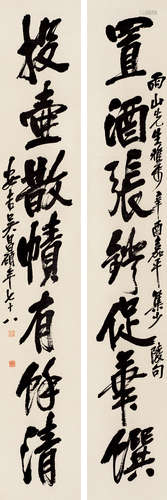 置酒張鐙促華饌
雨山先生雅屬辛酉嘉平集少陵句
投壺散幘有餘清
安吉吳昌碩年七十八